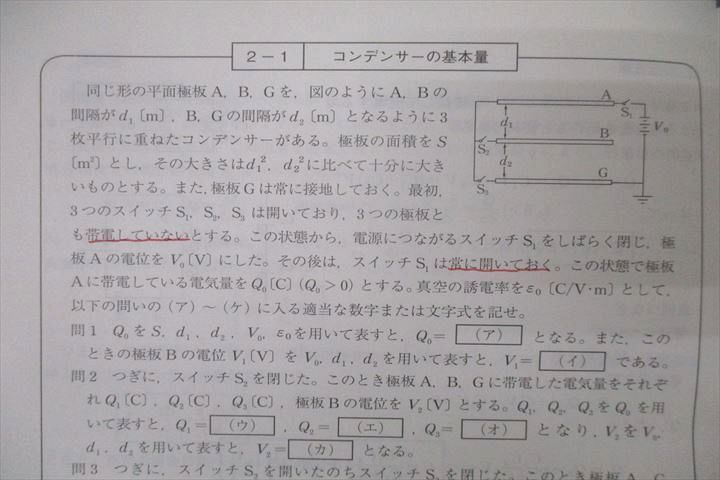 2－1 コンデンサーの基本量
同じ形の平面極板A，B，Gを，図のようにA，Bの
間隔がd₁〔m〕，B，Gの間隔がd₂〔m〕となるように3
枚平行に重ねたコンデンサーがある。極板の面積をS
〔m²〕とし，その大きさはd₁²，d₂²に比べて十分に大き
いものとする。また，極板Gは常に接地しておく。最初，
3つのスイッチS₁，S₂，S₃は開いており，3つの極板と
も帯電していないとする。この状態から，電源につながるスイッチS₁をしばらく閉じ，極
板Aの電位をV₀〔V〕にした。その後は，スイッチS₁は常に開いておく。この状態で極板
Aに帯電している電気量をQ₀〔C〕(Q₀＞0)とする。真空の誘電率をε₀〔C/V·m〕として，
以下の問いの(ア)～(ケ)に入る適当な数字または文字式を記せ。
問1 Q₀をS，d₁，d₂，V₀，ε₀を用いて表すと，Q₀＝(ア)となる。また，この
ときの極板Bの電位V₁〔V〕をV₀，d₁，d₂を用いて表すと，V₁＝(イ)である。
問2 つぎに，スイッチS₂を閉じた。このとき極板A，B，Gに帯電した電気量をそれぞ
れQ₁〔C〕，Q₂〔C〕，Q₃〔C〕，極板Bの電位をV₂〔V〕とする。Q₁，Q₂，Q₃をQ₀を用
いて表すと，Q₁＝(ウ)，Q₂＝(エ)，Q₃＝(オ)となり，V₂をV₀，
d₁，d₂を用いて表すと，V₂＝(カ)となる。
問3 つぎに，スイッチS₂を開いたのちスイッチS₃を閉じた。このとき極板A，G
A
S₁
d₁
V₀
B
S₂
d₂
G
S₃